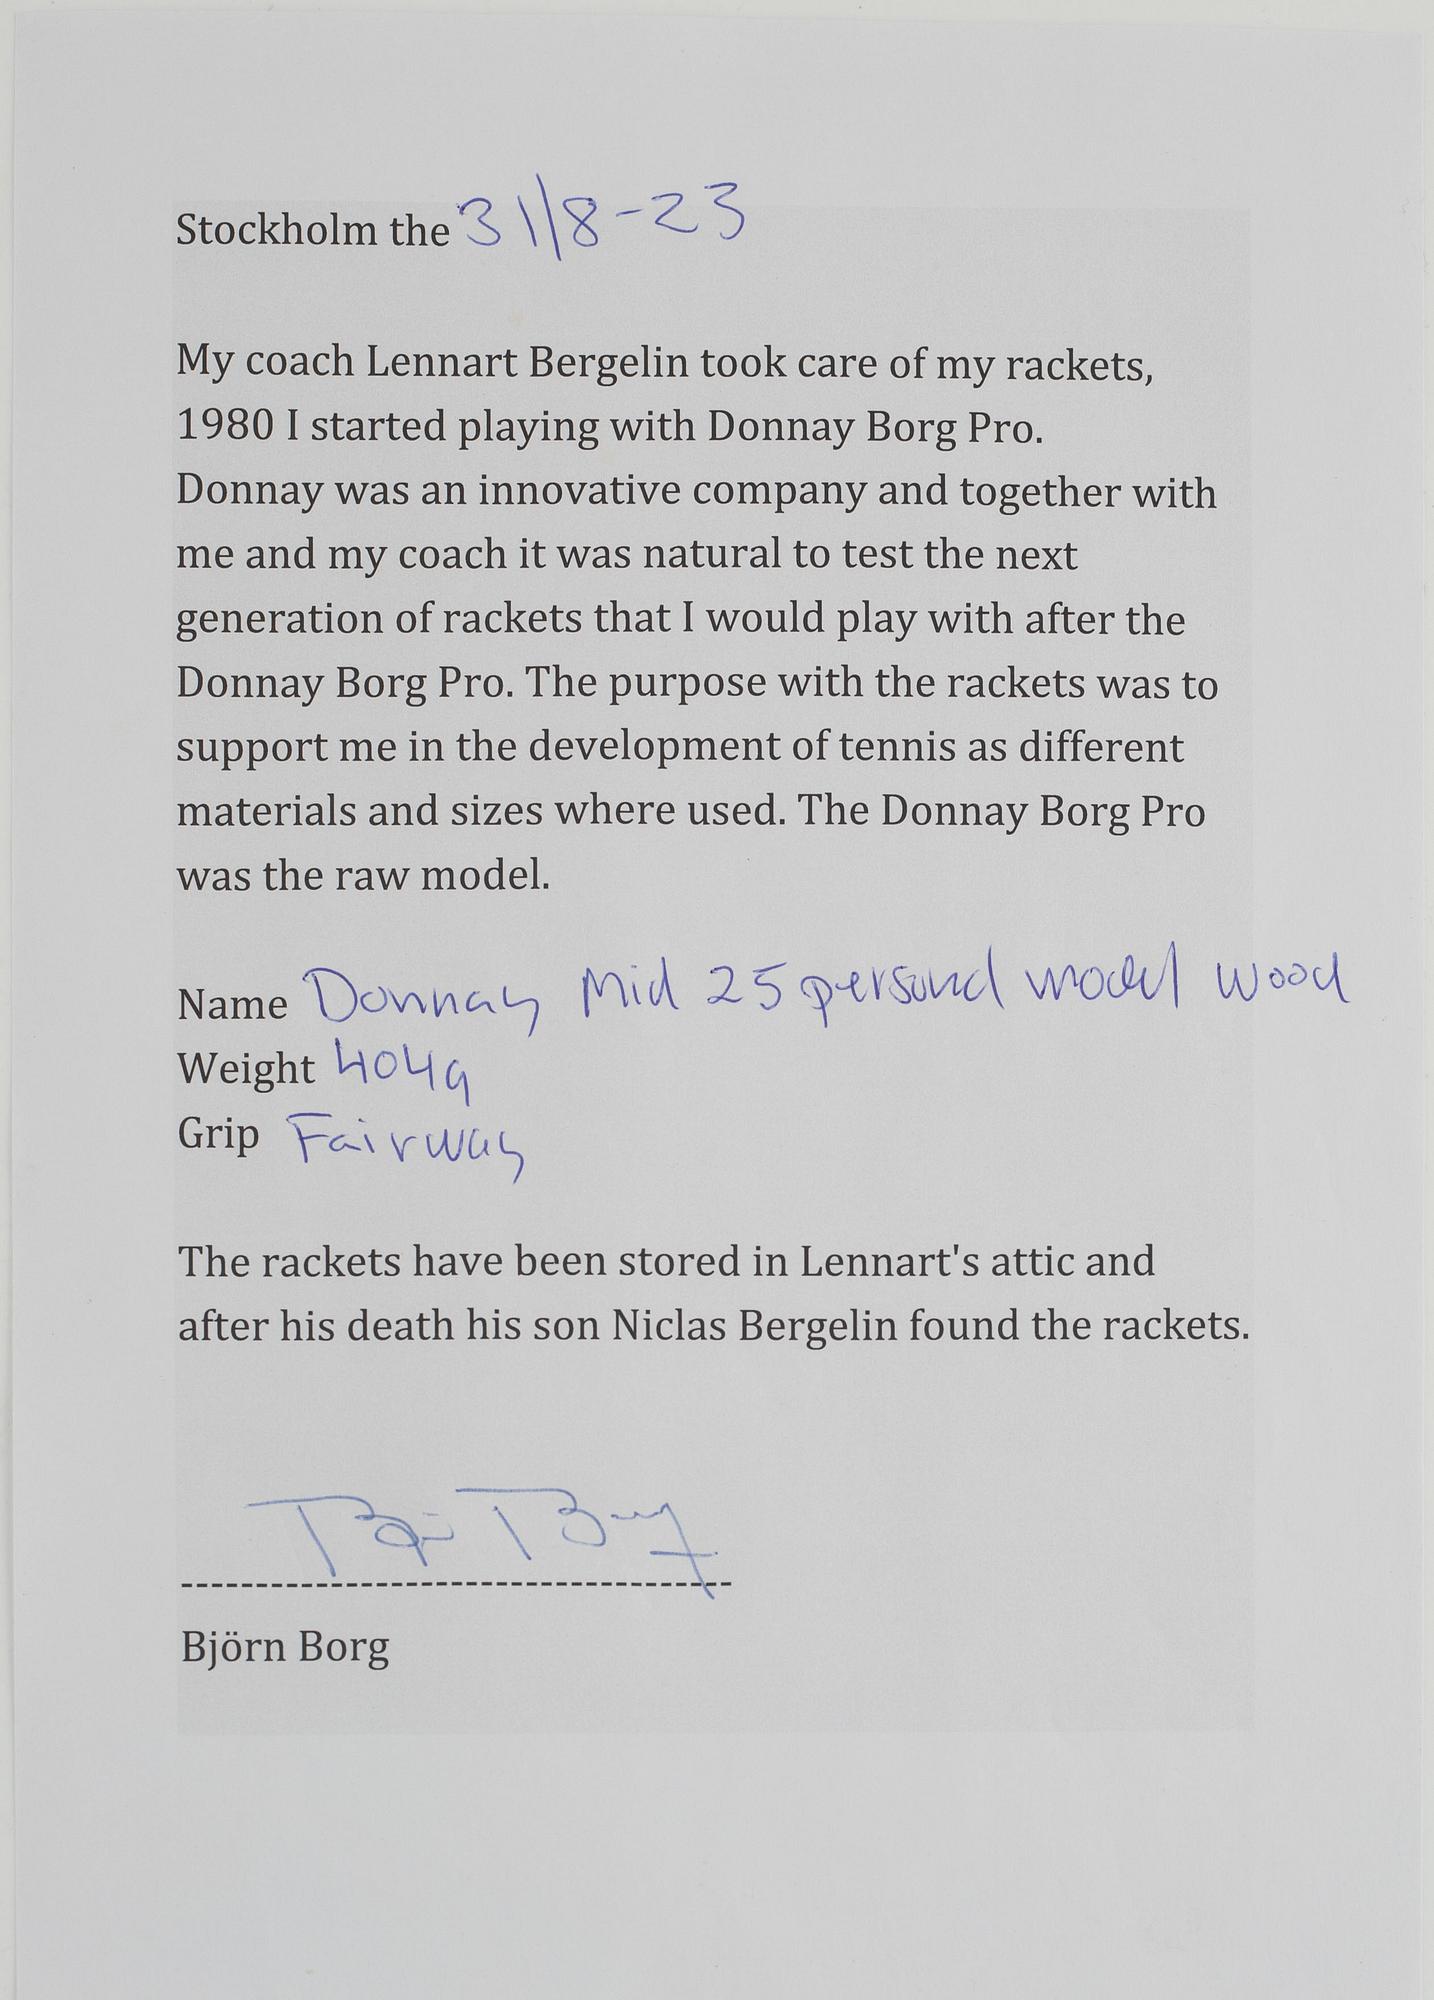 Stockholm the 31/8-23
My coach Lennart Bergelin took care of my rackets,
1980 I started playing with Donnay Borg Pro.
Donnay was an innovative company and together with
me and my coach it was natural to test the next
generation of rackets that I would play with after the
Donnay Borg Pro. The purpose with the rackets was to
support me in the development of tennis as different
materials and sizes where used. The Donnay Borg Pro
was the raw model.
Name Donnay Mid 25 personal model wood
Weight 404g
Grip Fairway
The rackets have been stored in Lennart's attic and
after his death his son Niclas Bergelin found the rackets.
Björn Borg
Björn Borg